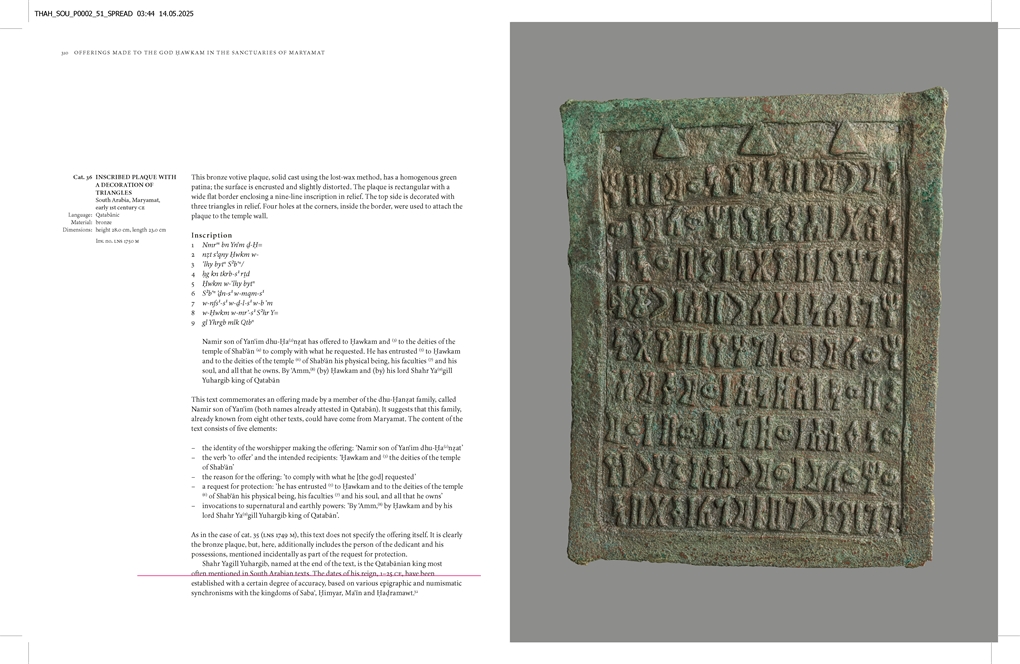 THAH_SOU_P0002_51_SPREAD 03:44 14.05.2025
320 OFFERINGS MADE TO THE GOD ḤAWKAM IN THE SANCTUARIES OF MARYAMAT
Cat. 36 INSCRIBED PLAQUE WITH
A DECORATION OF
TRIANGLES
South Arabia, Maryamat,
early 1st century CE
Language: Qatabānic
Material: bronze
Dimensions: height 28.0 cm, length 23.0 cm
Inv. no. LNS 1750 M
This bronze votive plaque, solid cast using the lost-wax method, has a homogenous green
patina; the surface is encrusted and slightly distorted. The plaque is rectangular with a
wide flat border enclosing a nine-line inscription in relief. The top side is decorated with
three triangles in relief. Four holes at the corners, inside the border, were used to attach the
plaque to the temple wall.
Inscription
1 Nmrᵐ bn Ynʿm ḏ-Ḥ=
2 nẓt s¹qny Ḥwkm w-
3 ʾlhy bytⁿ S²bʿⁿ/
4 ḥg kn tkrb-s¹ rṯd
5 Ḥwkm w-ʾlhy bytⁿ
6 S²bʿⁿ ʾḏn-s¹ w-mqm-s¹
7 w-nfs¹-s¹ w-ḏ-l-s¹ w-b ʿm
8 w-Ḥwkm w-mrʾ-s¹ S²hr Y=
9 gl Yhrgb mlk Qtbⁿ
Namir son of Yanʿim dhu-Ḥa⁽²⁾nẓat has offered to Ḥawkam and ⁽³⁾ to the deities of the
temple of Shabʿān ⁽⁴⁾ to comply with what he requested. He has entrusted ⁽⁵⁾ to Ḥawkam
and to the deities of the temple ⁽⁶⁾ of Shabʿān his physical being, his faculties ⁽⁷⁾ and his
soul, and all that he owns. By ʿAmm,⁽⁸⁾ (by) Ḥawkam and (by) his lord Shahr Ya⁽⁹⁾gill
Yuhargib king of Qatabān
This text commemorates an offering made by a member of the dhu-Ḥanẓat family, called
Namir son of Yanʿim (both names already attested in Qatabān). It suggests that this family,
already known from eight other texts, could have come from Maryamat. The content of the
text consists of five elements:
– the identity of the worshipper making the offering: ‘Namir son of Yanʿim dhu-Ḥa⁽²⁾nẓat’
– the verb ‘to offer’ and the intended recipients: ‘Ḥawkam and ⁽³⁾ the deities of the temple
of Shabʿān’
– the reason for the offering: ‘to comply with what he [the god] requested’
– a request for protection: ‘he has entrusted ⁽⁵⁾ to Ḥawkam and to the deities of the temple
⁽⁶⁾ of Shabʿān his physical being, his faculties ⁽⁷⁾ and his soul, and all that he owns’
– invocations to supernatural and earthly powers: ‘By ʿAmm,⁽⁸⁾ by Ḥawkam and by his
lord Shahr Ya⁽⁹⁾gill Yuhargib king of Qatabān’.
As in the case of cat. 35 (LNS 1749 M), this text does not specify the offering itself. It is clearly
the bronze plaque, but, here, additionally includes the person of the dedicant and his
possessions, mentioned incidentally as part of the request for protection.
Shahr Yagill Yuhargib, named at the end of the text, is the Qatabānian king most
often mentioned in South Arabian texts. The dates of his reign, 1–25 CE, have been
established with a certain degree of accuracy, based on various epigraphic and numismatic
synchronisms with the kingdoms of Sabaʾ, Ḥimyar, Maʿīn and Ḥaḍramawt.